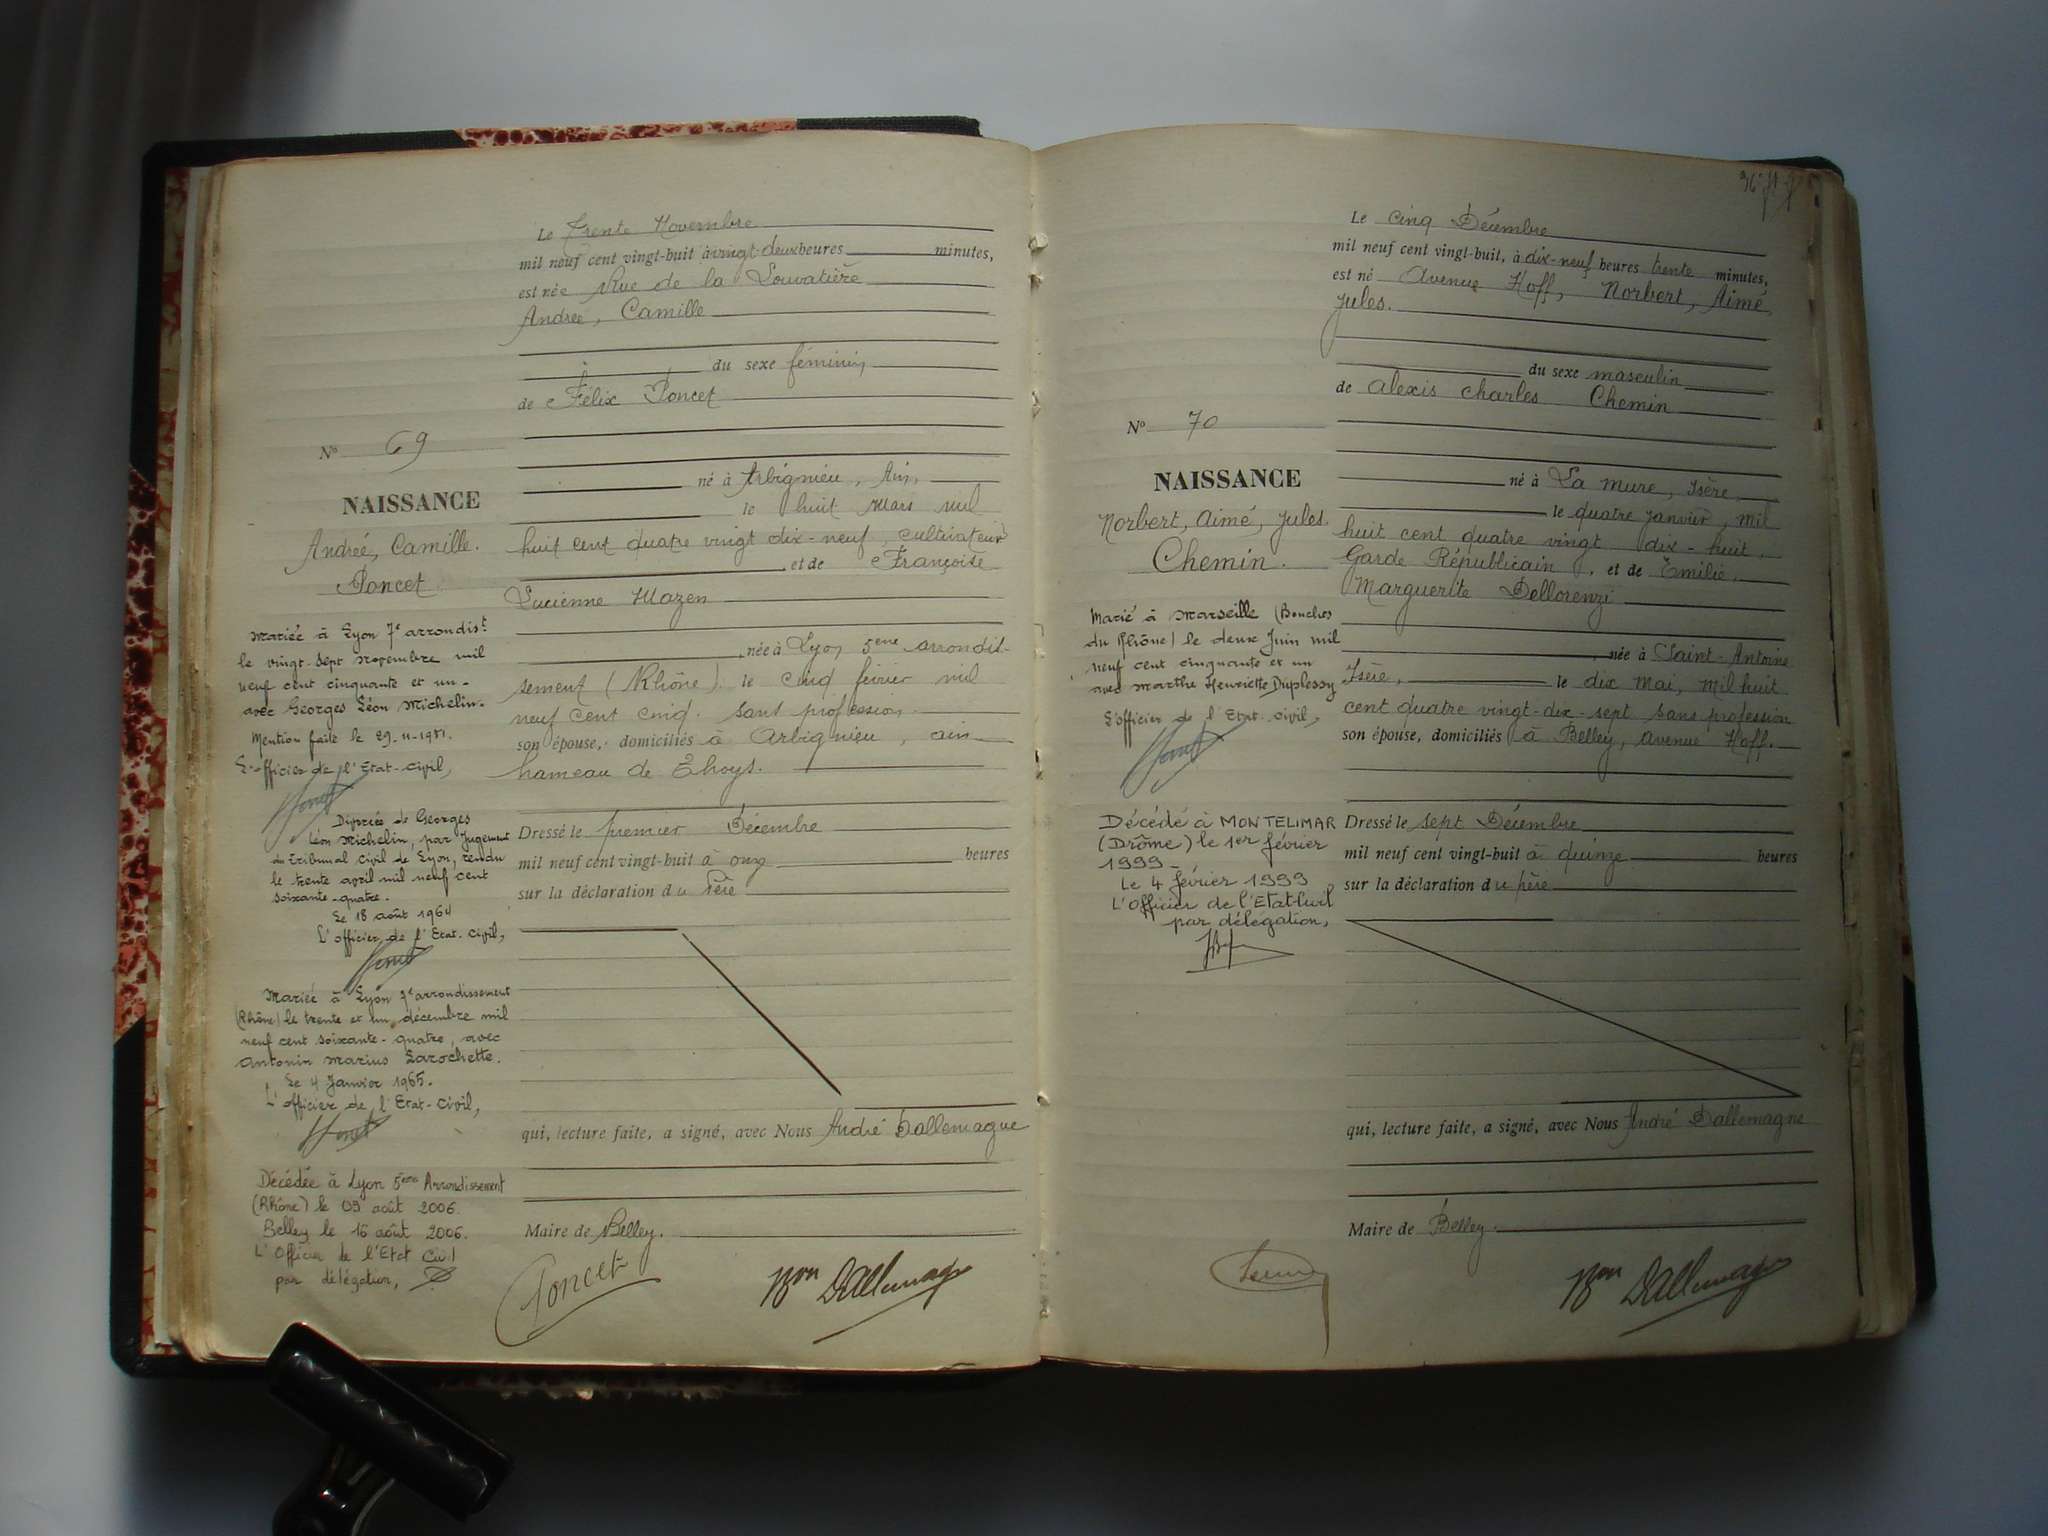 Le trente Novembre
mil neuf cent vingt-huit à vingt-deux heures minutes,
est née Rue de la Louvatière
Andrée, Camille
du sexe féminin
de Félix Poncet
N° 69
NAISSANCE
Andrée, Camille.
Poncet
né à Arbignieu, Ain,
le huit Mars mil
huit cent quatre vingt dix-neuf, cultivateur
et de Françoise
Lucienne Mazen
née à Lyon 5eme arrondis-
sement (Rhône) le cinq février mil
neuf cent cinq. sans profession
son épouse, domiciliés à Arbignieu, ain
hameau de Thoys.
Dressé le premier Décembre
mil neuf cent vingt-huit à onze heures
sur la déclaration du Père
qui, lecture faite, a signé, avec Nous André Dallemagne
Maire de Belley.
Poncet
Bon Dallemagne
Mariée à Lyon 7e arrondist
le vingt-sept novembre mil
neuf cent cinquante et un-
avec Georges Léon Michelin-
Mention faite le 29-11-1951.
L'officier de l'Etat-civil,
Divorcée de Georges
Léon Michelin, par Jugement
du Tribunal civil de Lyon, rendu
le trente avril mil neuf cent
soixante-quatre.
Le 18 août 1964
L'officier de l'Etat-civil,
Mariée à Lyon 7e arrondissement
(Rhône) le trente et un décembre mil
neuf cent soixante-quatre, avec
Antonin Marius Larochette.
Le 4 Janvier 1965.
L'officier de l'Etat-civil,
Décédée à Lyon 5ème Arrondissement
(Rhône) le 09 août 2006.
Belley le 16 août 2006.
L'Officier de l'Etat Civil
par délégation,
Le cinq Décembre
mil neuf cent vingt-huit, à dix-neuf heures trente minutes,
est né Avenue Hoff, Norbert, Aimé,
Jules.
du sexe masculin
de Alexis Charles Chemin
N° 70
NAISSANCE
Norbert, Aimé, Jules
Chemin.
né à La Mure, Isère,
le quatre Janvier, mil
huit cent quatre vingt dix-huit,
Garde Républicain, et de Emilie,
Marguerite Dellorenzi
née à Saint-Antoine
Isère, le dix Mai, mil huit
cent quatre vingt-dix-sept sans profession
son épouse, domiciliés à Belley, avenue Hoff.
Dressé le sept Décembre
mil neuf cent vingt-huit à quinze heures
sur la déclaration du père
qui, lecture faite, a signé, avec Nous André Dallemagne
Maire de Belley.
Bon Dallemagne
Marié à Marseille (Bouches
du Rhône) le deux Juin mil
neuf cent cinquante et un
avec Marthe Henriette Duplessy
L'officier de l'Etat-civil,
Décédé à MONTELIMAR
(Drôme) le 1er février
1999-
Le 4 février 1999
L'Officier de l'Etat-Civil
par délégation,